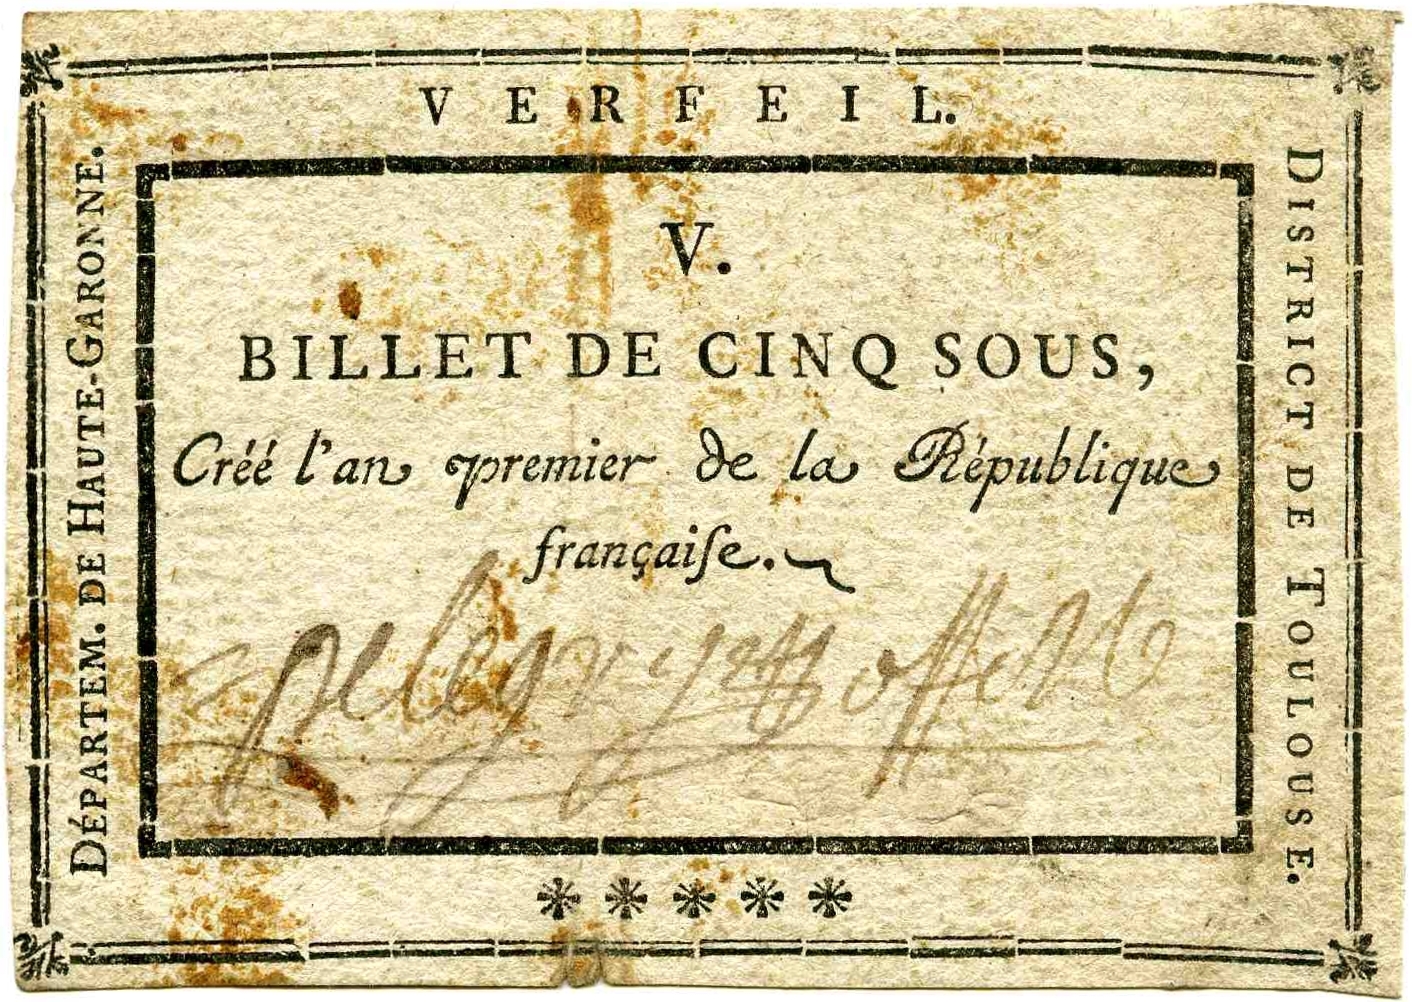 VERFEIL.
DÉPARTEM. DE HAUTE-GARONNE.
DISTRICT DE TOULOUSE.
V.
BILLET DE CINQ SOUS,
Créé l'an premier de la République
françaiſe.